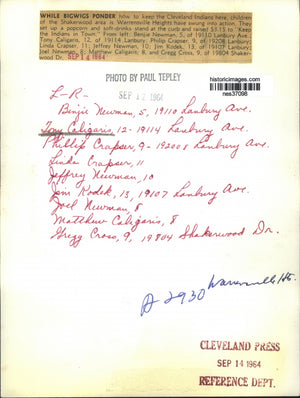 WHILE BIGWICS PONDER how to keep the Cleveland Indians here, children of the Shakerwood area in Warrensville Heights have swung into action. They put a popcorn and soft-drinks stand at the curb and raised $1.13 to "Keep the Indians in Town." From left: Benjie Newman, 5, of 19110 Lanbury Ave.; Tony Caligaris, 12, of 19114 Lanbury; Philip Crapser, 9, of 19208 Lanbury; Linda Crapser, 11; Jeffrey Newman, 10; Jim Kodek, 13, of 19107 Lanbury; Joel Newman, 8; Matthew Caligaris, 8, and Gregg Cross, 9, of 19804 Shakerwood Dr.
SEP 14 1964
PHOTO BY PAUL TEPLEY
SEP 12 1964
historicimages.com
nes37098
L-R-
Benjie Newman, 5, 19110 Lanbury Ave.
Tony Caligaris, 12-19114 Lanbury Ave.
Phillip Crapser, 9-19208 Lanbury Ave.
Linda Crapser, 11
Jeffrey Newman, 10
Jim Kodek, 13, 19107 Lanbury Ave.
Joel Newman, 8
Matthew Caligaris, 8
Gregg Cross, 9, 19804 Shakerwood Dr.
Warrensville Hts.
A 2930
CLEVELAND PRESS
SEP 14 1964
REFERENCE DEPT.